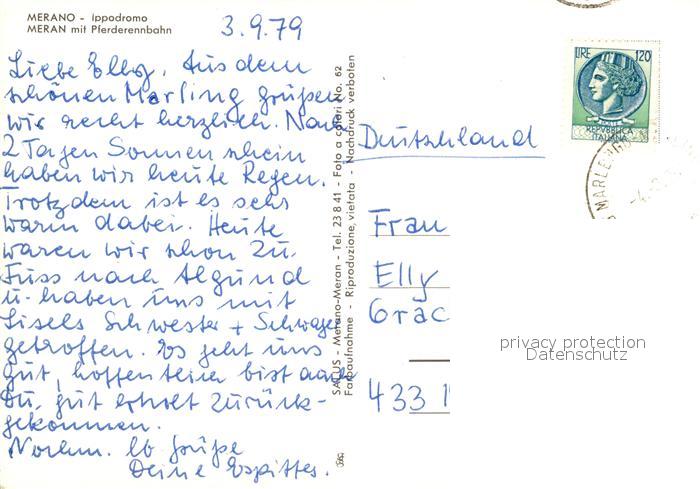 MERANO - Ippodromo
MERAN mit Pferderennbahn
3.9.79
Liebe Elly, Aus dem
schönen Marling grüßen
wir recht herzlich. Nach
2 Tagen Sonnenschein
haben wir heute Regen.
Trotzdem ist es sehr
warm dabei. Heute
waren wir schon zu
Fuss nach Algund
u. haben uns mit
Lisels Schwester + Schwager
getroffen. Es geht uns
gut, hoffentlich bist auch
Du gut erholt zurück-
gekommen.
Nochm. lb Grüße
Deine
SALUS - Merano-Meran - Tel. 23 8 41 - Foto a colori No. 62
Farbaufnahme - Riproduzione vietata - Nachdruck verboten
LIRE 120
REPVBBLICA
ITALIANA
MARLE
Deutschland
Frau
Elly
Grac
433
privacy protection
Datenschutz